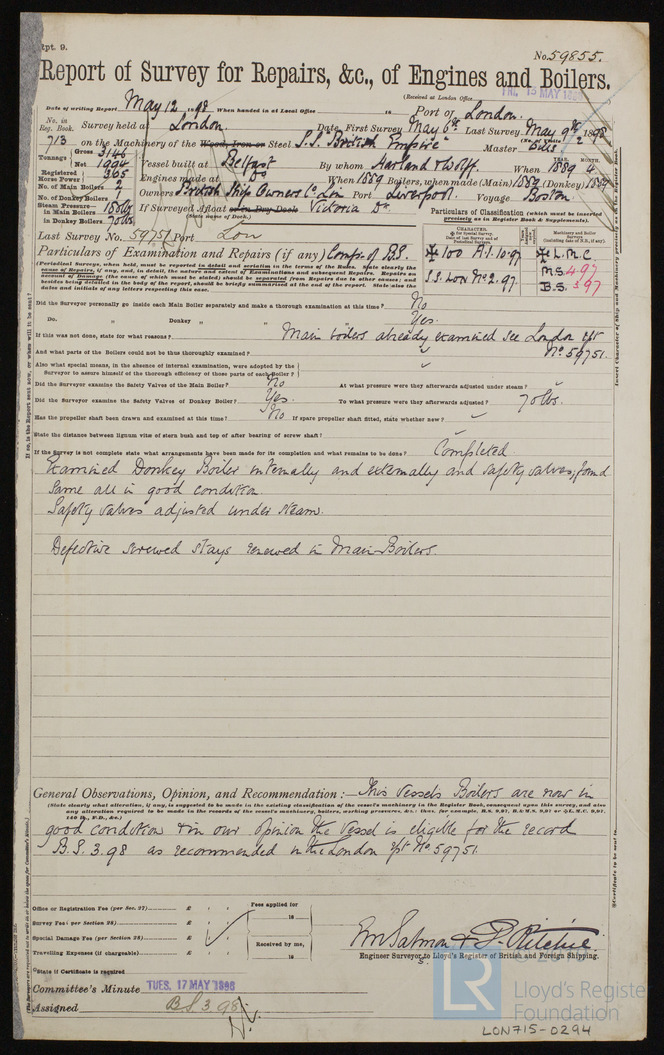 Rpt. 9.
No. 59855.
Report of Survey for Repairs, &c., of Engines and Boilers.
(Received at London Office FRI. 13 MAY 1898
Date of writing Report May 12 1898 When handed in at Local Office 18 Port of London.
No. in Reg. Book. 713 Survey held at London. Date, First Survey May 6th Last Survey May 9th 1898
(No. of Visits 2
on the Machinery of the Wood, Iron or Steel S.S. British Empire Master
Tonnage Gross 3146 Net 1994
Vessel built at Belfast By whom Harland & Wolff. When YEAR. 1889 MONTH. 4
Registered Horse Power 365
Engines made at Do When 1889 Boilers, when made (Main) 1889 (Donkey) 1889
No. of Main Boilers 2
Owners British Ship Owners Co Lim Port Liverpool. Voyage Boston
No. of Donkey Boilers
Steam Pressure in Main Boilers
in Donkey Boilers 70 lbs
If Surveyed Afloat or in Dry Dock Victoria Dk
(State name of Dock.)
Particulars of Classification (which must be inserted precisely as in Register Book & Supplements).
Last Survey No. 59751 Port Lon
CHARACTER.
Machinery and Boiler Surveys (including date of N.B., if any).
Particulars of Examination and Repairs (if any) Compn. of B.S.
✠ 100 A.1. 10.97
✠ L.M.C.
M.S. 4.97
S.S. Lon No 2. 97.
B.S. 3.97
(Periodical Surveys, when held, must be reported in detail and seriatim in the terms of the Rules. State clearly the cause of Repairs, if any, and, in detail, the nature and extent of Examinations and subsequent Repairs. Repairs on account of Damage (the cause of which must be stated) should be separated from Repairs due to other causes; and besides being detailed in the body of the report, should be briefly summarized at the end of the report. State also the dates and initials of any letters respecting this case.
Did the Surveyor personally go inside each Main Boiler separately and make a thorough examination at this time? No
Do. „ Donkey „ „ Yes.
If this was not done, state for what reasons? Main boilers already examined see London rpt No. 59751.
And what parts of the Boilers could not be thus thoroughly examined?
Also what special means, in the absence of internal examination, were adopted by the Surveyor to assure himself of the thorough efficiency of those parts of each Boiler?
Did the Surveyor examine the Safety Valves of the Main Boiler? No At what pressure were they afterwards adjusted under steam?
Did the Surveyor examine the Safety Valves of Donkey Boiler? Yes. To what pressure were they afterwards adjusted? 70 lbs.
Has the propeller shaft been drawn and examined at this time? No If spare propeller shaft fitted, state whether new?
State the distance between lignum vitæ of stern bush and top of after bearing of screw shaft?
If the Survey is not complete state what arrangements have been made for its completion and what remains to be done? Completed
Examined Donkey Boiler internally and externally and safety valves, found
same all in good condition.
Safety valves adjusted under steam.
Defective screwed stays renewed in Main Boilers.
General Observations, Opinion, and Recommendation:— This vessels Boilers are now in
(State clearly what alteration, if any, is suggested to be made in the existing classification of the vessel's machinery in the Register Book, consequent upon this survey, and also any alteration required to be made in the records of the vessel's machinery, boilers, working pressures, &c.: thus, for example, B.S. 9,97, B.&M.S. 9,97 or ✠L.M.C. 9,97. 140 lb., F.D., &c.)
good condition & in our opinion the vessel is eligible for the record
B.S. 3.98 as recommended in the London rpt No. 59751.
Office or Registration Fee (per Sec. 27) £ : :
Fees applied for
18
Survey Fee (per Section 28) £ : :
Special Damage Fee (per Section 28) £ : :
Received by me,
18
Travelling Expenses (if chargeable) £ : :
Wm Salmon & P. Ritchie.
Engineer Surveyors to Lloyd's Register of British and Foreign Shipping.
State if Certificate is required
Committee's Minute TUES. 17 MAY 1898
Assigned B.S 3.98
© 2020
LR
Lloyd's Register Foundation
LON715-0294